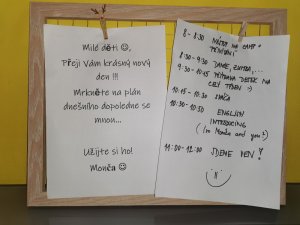 Milé děti ☺,
Přeji Vám krásný nový
den !!!
Mrkněte na plán
dnešního dopoledne se
mnou...
Užijte si ho!
Monča ☺
8 - 8:30 NÁZEV NA CAMP +
8:30 - 9:30 DANCE, ZUMBA, ...
9:30 - 10:15 PŘÍPRAVA DESEK NA
CELÝ TÝDEN :)
10:15 - 10:30 SVAČA
10:30 - 10:50 ENGLISH
INTRODUCING
(I'm Monča and you?)
11:00 - 12:00 JDEME VEN!